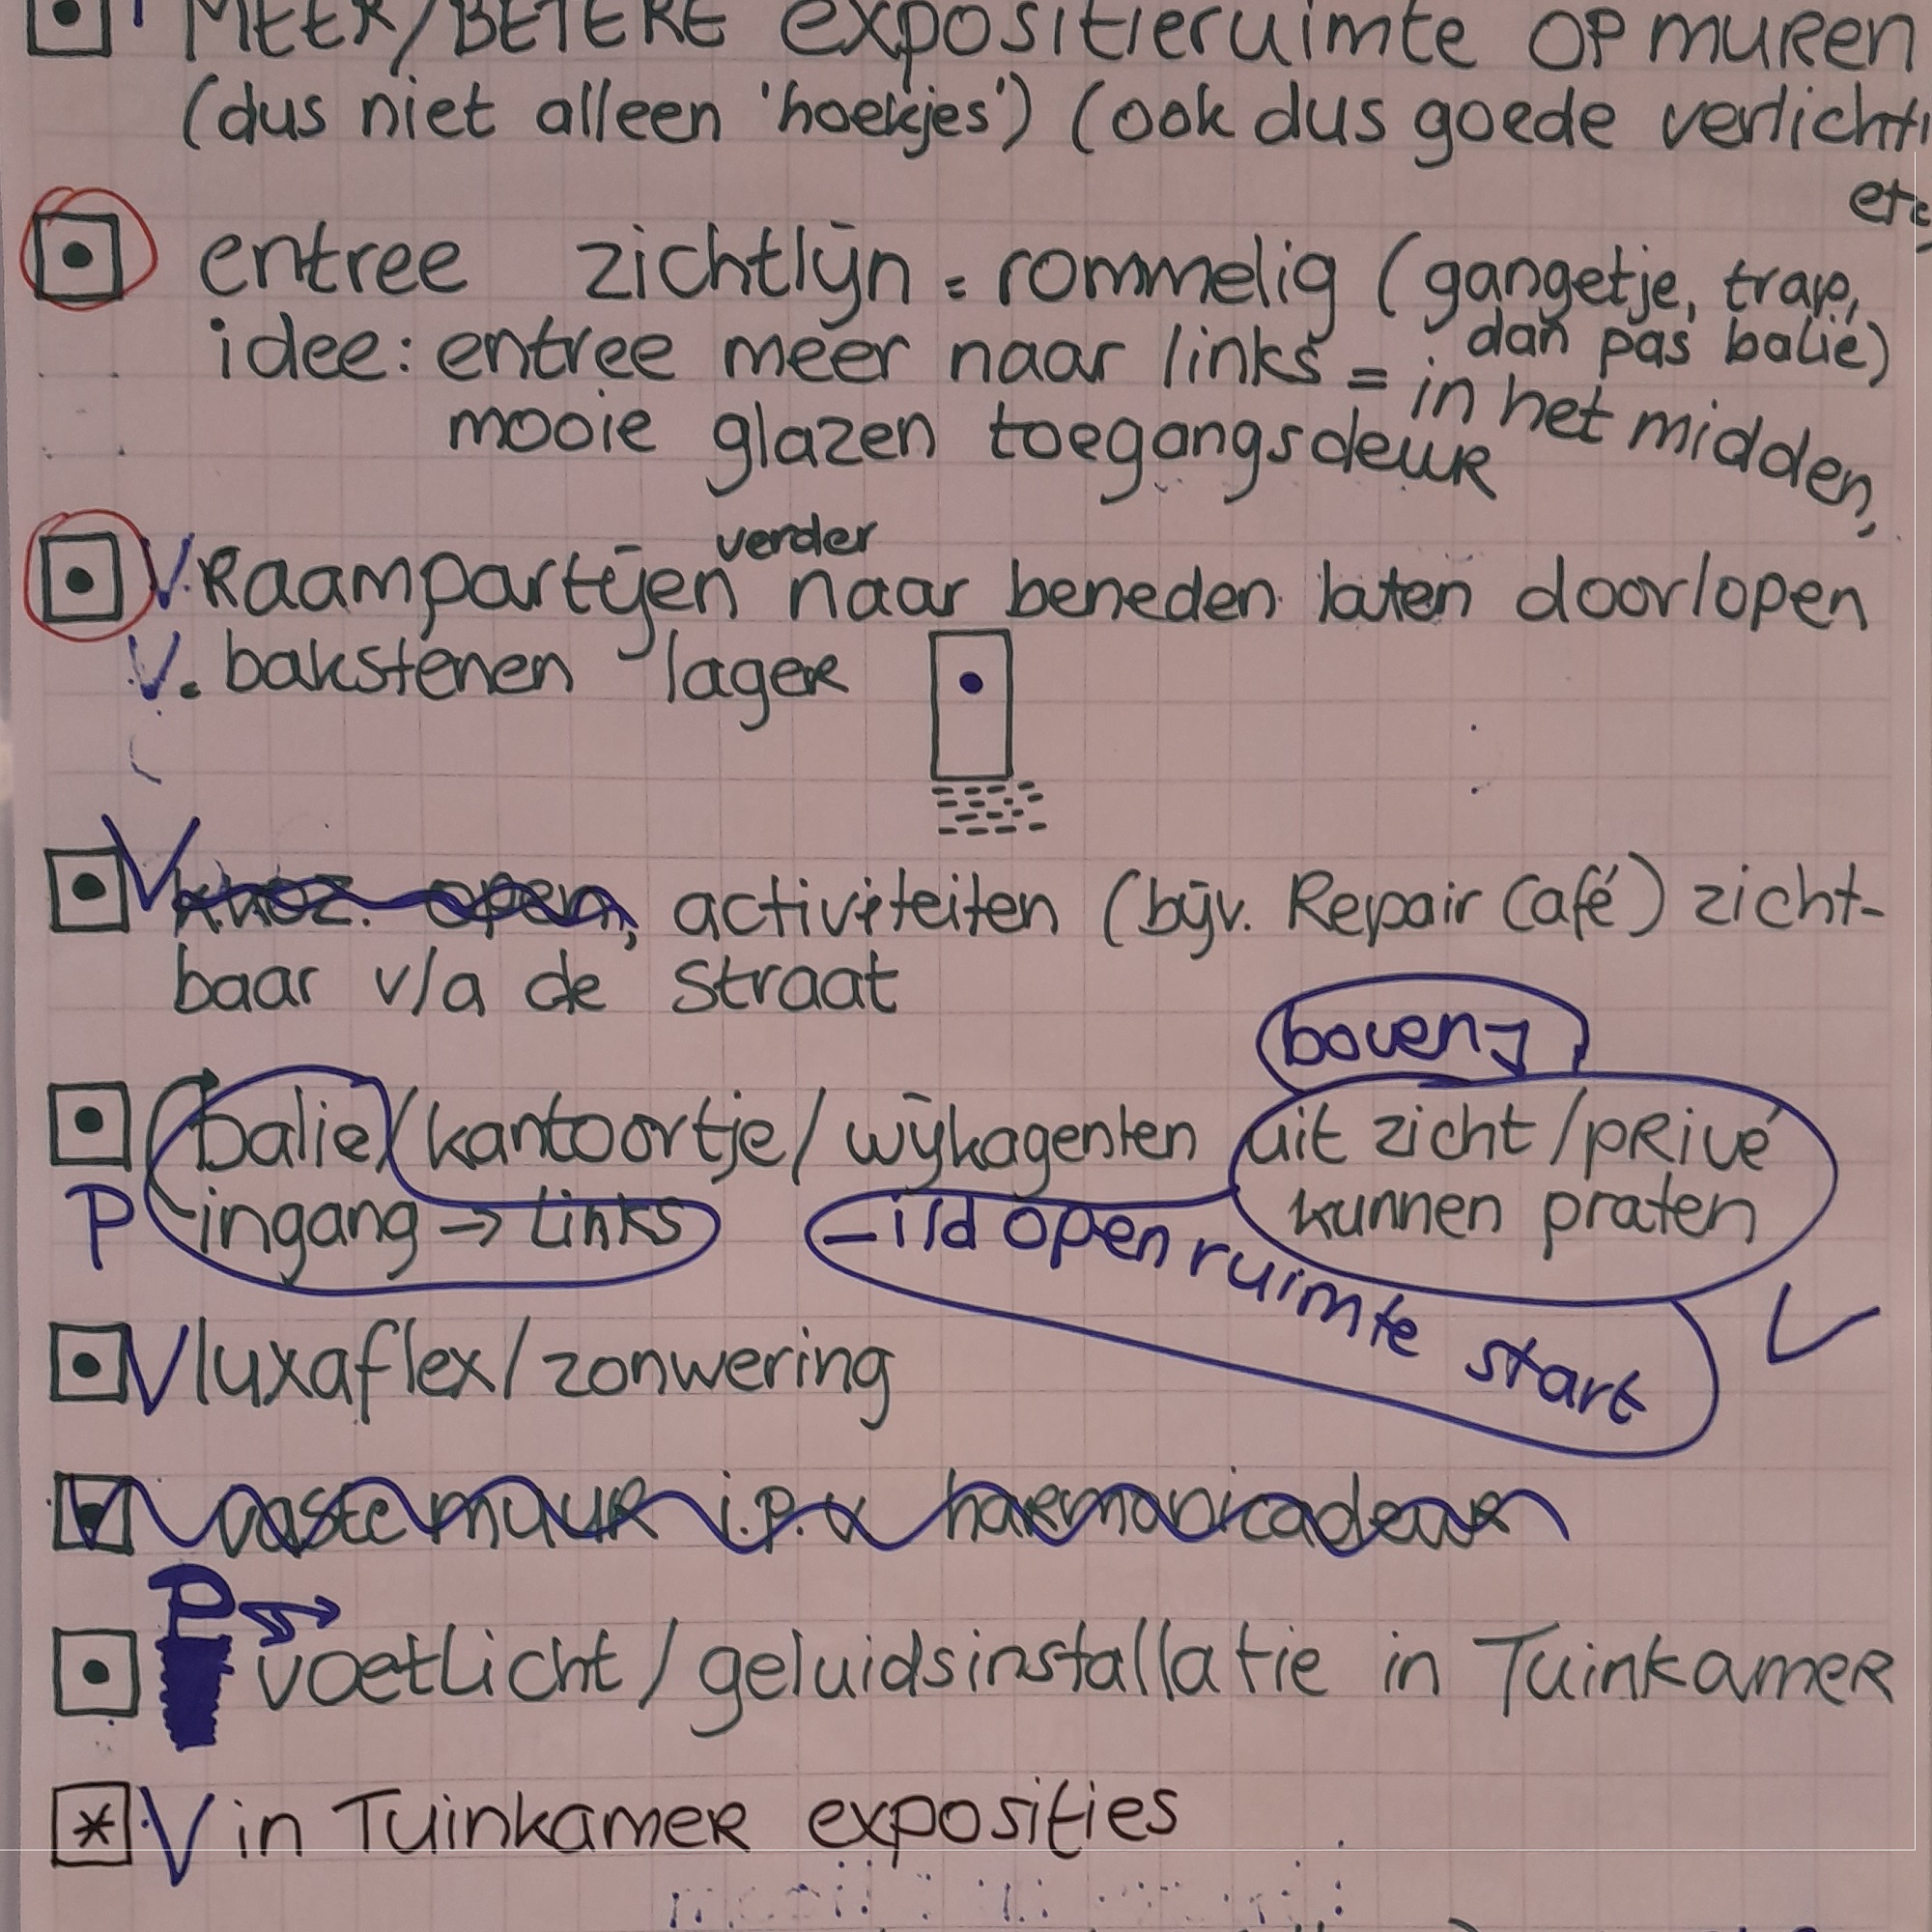 MEER/BETERE expositieruimte OP muren
(dus niet alleen 'hoekjes') (ook dus goede verlichti
etc
entree zichtlijn = rommelig (gangetje, trap,
dan pas balie)
idee: entree meer naar links = in het midden,
mooie glazen toegangsdeur
V Raampartijen verder naar beneden laten doorlopen
V. bakstenen lager
V activiteiten (bijv. Repair Café) zicht-
baar v/a de straat
boven
balie/kantoortje/wijkagenten uit zicht/privé
kunnen praten
P ingang → links
- i/d open ruimte start
V
V luxaflex/zonwering
V vaste muur i.p.v harmonicadeur
P →
voetlicht/geluidsinstallatie in Tuinkamer
* V in Tuinkamer exposities